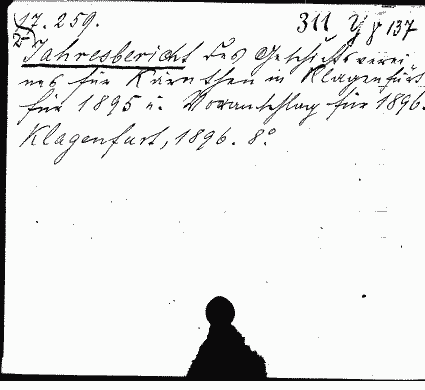 17.259. 311 Y 8 137
Jahresbericht des Geschichtsverei
nes für Kärnthen in Klagenfurt
für 1895 u. Voranschlag für 1896.
Klagenfurt, 1896. 8°.